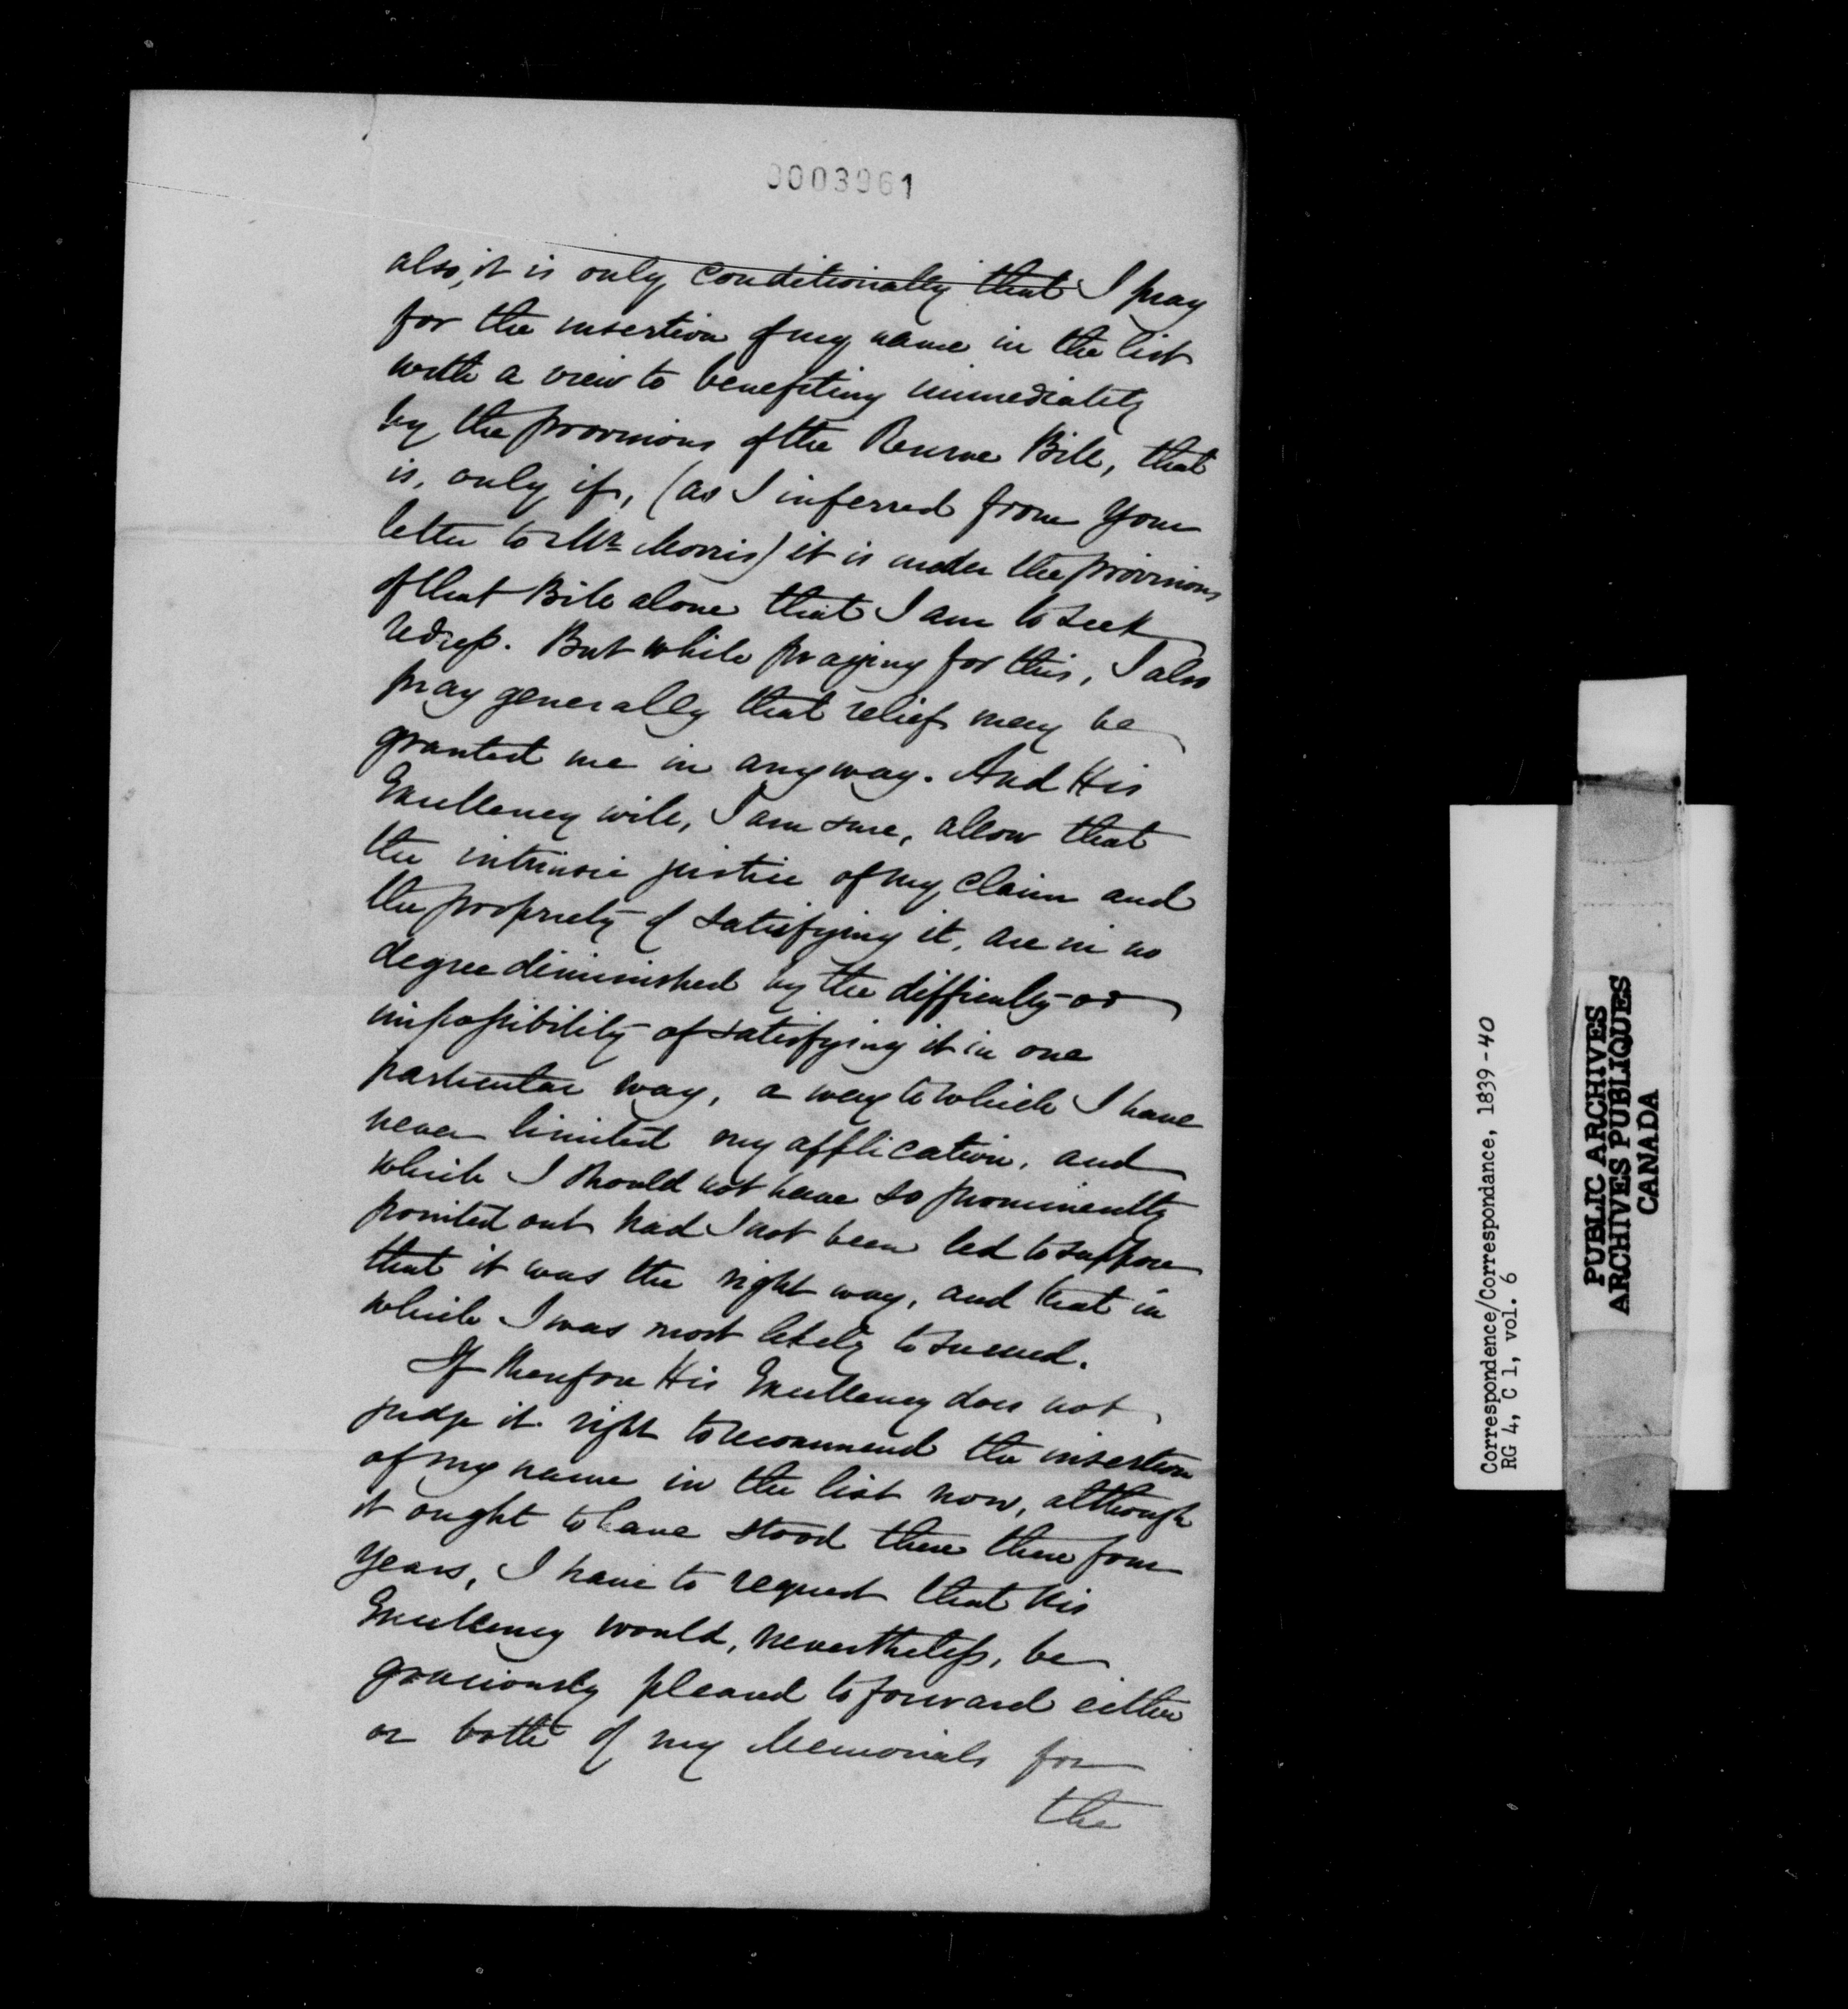 0003961
also, it is only conditionally that I pray
for the insertion of my name in the list
with a view to benefiting immediately
by the provisions of the Reserve Bill, that
is, only if, (as I inferred from your
letter to Mr Morris) it is under the provisions
of that Bill alone that I am to seek
redress. But while praying for this, I also
pray generally that relief may be
granted me in any way. And His
Excellency will, I am sure, allow that
the intrinsic justice of my claim and
the propriety of satisfying it, are in no
degree diminished by the difficulty or
impossibility of satisfying it in one
particular way, a way to which I have
never limited my application, and
which I should not have so prominently
pointed out had I not been led to suppose
that it was the right way, and that in
which I was most likely to succeed.
If therefore His Excellency does not
judge it right to recommend the insertion
of my name in the list now, although
it ought to have stood there these four
years, I have to request that His
Excellency would, nevertheless, be
graciously pleased to forward either
or both of my Memorials for
the
Correspondence/Correspondance, 1839-40
RG 4, C 1, vol. 6
PUBLIC ARCHIVES
ARCHIVES PUBLIQUES
CANADA